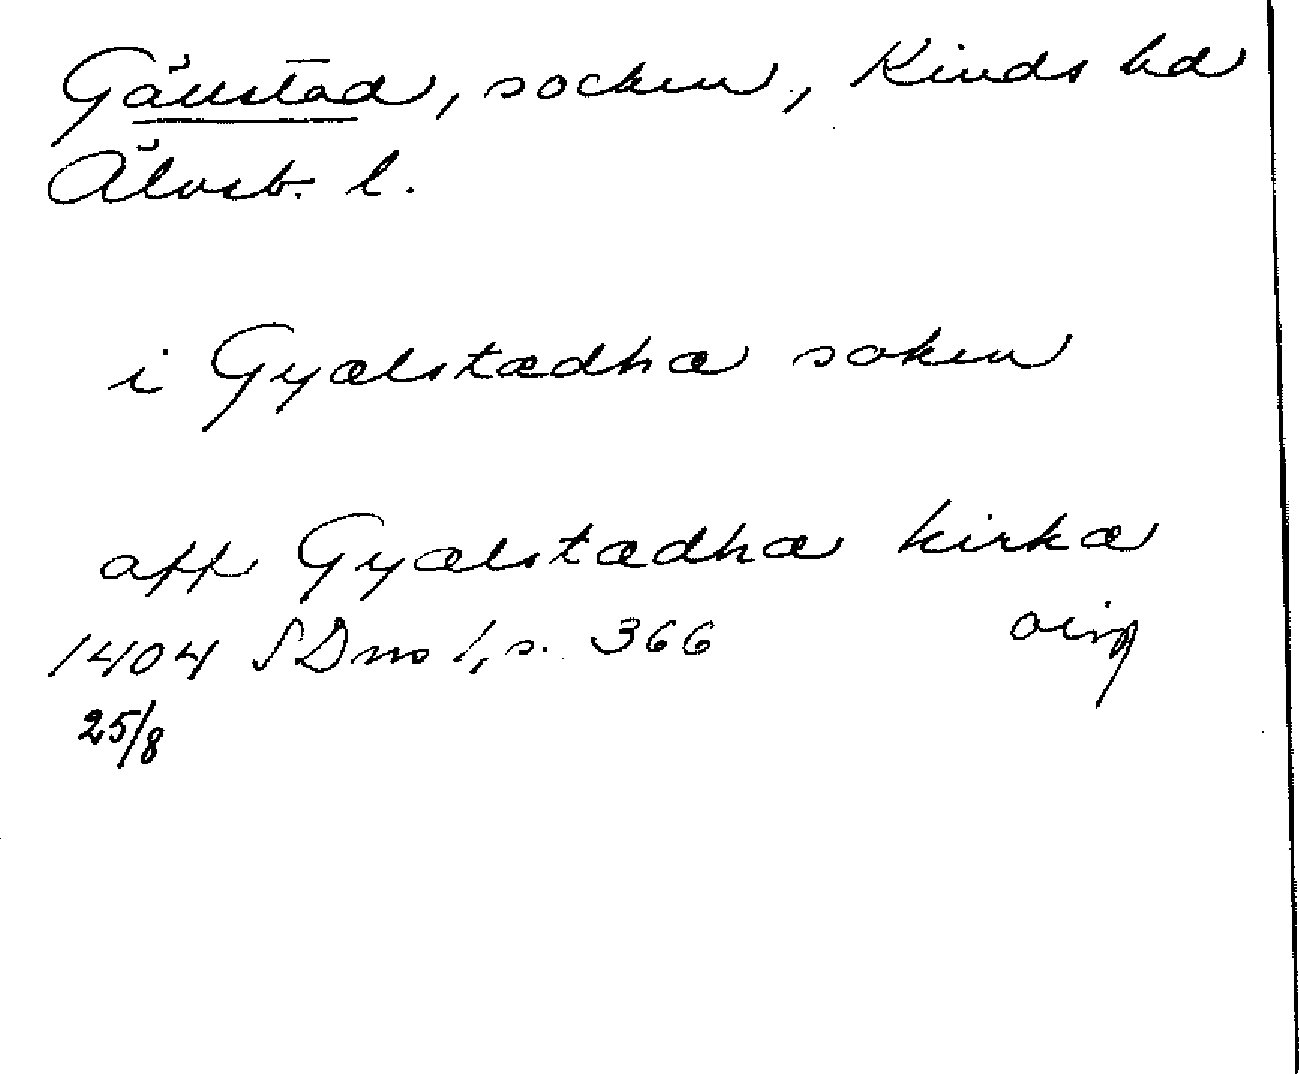 Gällstad, socken, Kinds hd
Älvsb. l.
i Gyælstædhæ soken
aff Gyælstædhæ kirkæ
1404 SDns 1, s. 366 orig
25/8